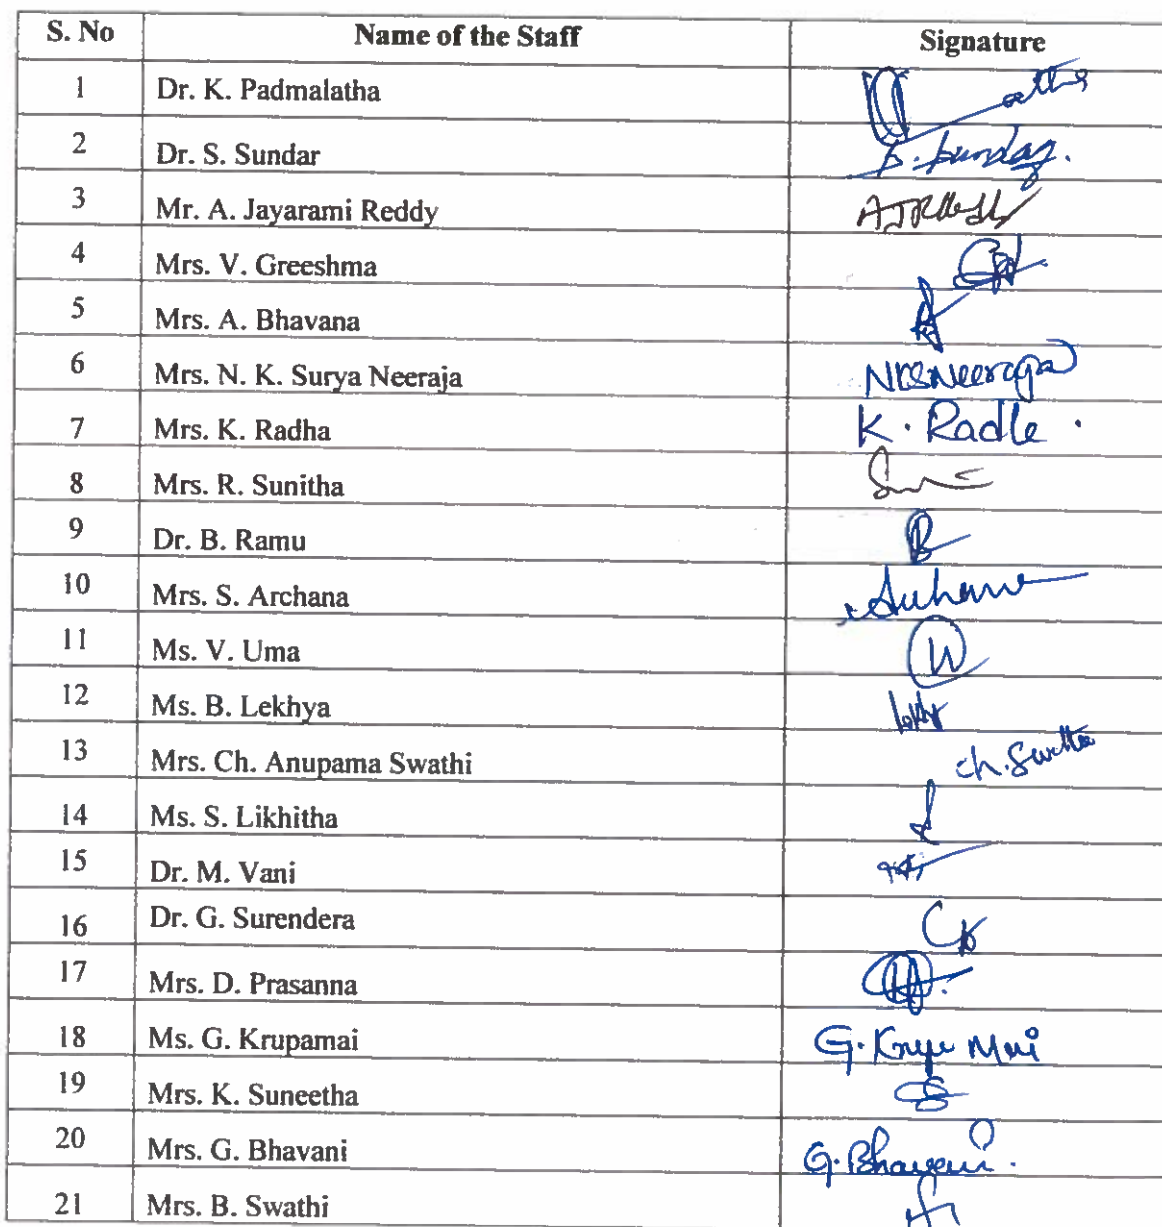 S. No Name of the Staff Signature
1 Dr. K. Padmalatha
2 Dr. S. Sundar S. Sundar.
3 Mr. A. Jayarami Reddy AJR
4 Mrs. V. Greeshma
5 Mrs. A. Bhavana
6 Mrs. N. K. Surya Neeraja NKSNeeraja
7 Mrs. K. Radha K. Radha.
8 Mrs. R. Sunitha
9 Dr. B. Ramu B
10 Mrs. S. Archana
11 Ms. V. Uma
12 Ms. B. Lekhya
13 Mrs. Ch. Anupama Swathi Ch. Swathi
14 Ms. S. Likhitha
15 Dr. M. Vani
16 Dr. G. Surendera
17 Mrs. D. Prasanna
18 Ms. G. Krupamai G. Krupa Mai
19 Mrs. K. Suneetha
20 Mrs. G. Bhavani G. Bhavani.
21 Mrs. B. Swathi